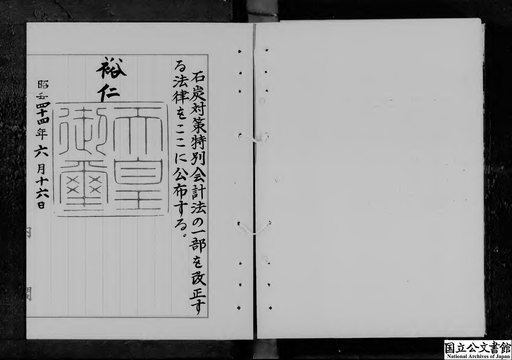 石炭対策特別会計法の一部を改正す
る法律をここに公布する。
裕仁
天皇
御璽
昭和四十四年六月十六日
国立公文書館
National Archives of Japan